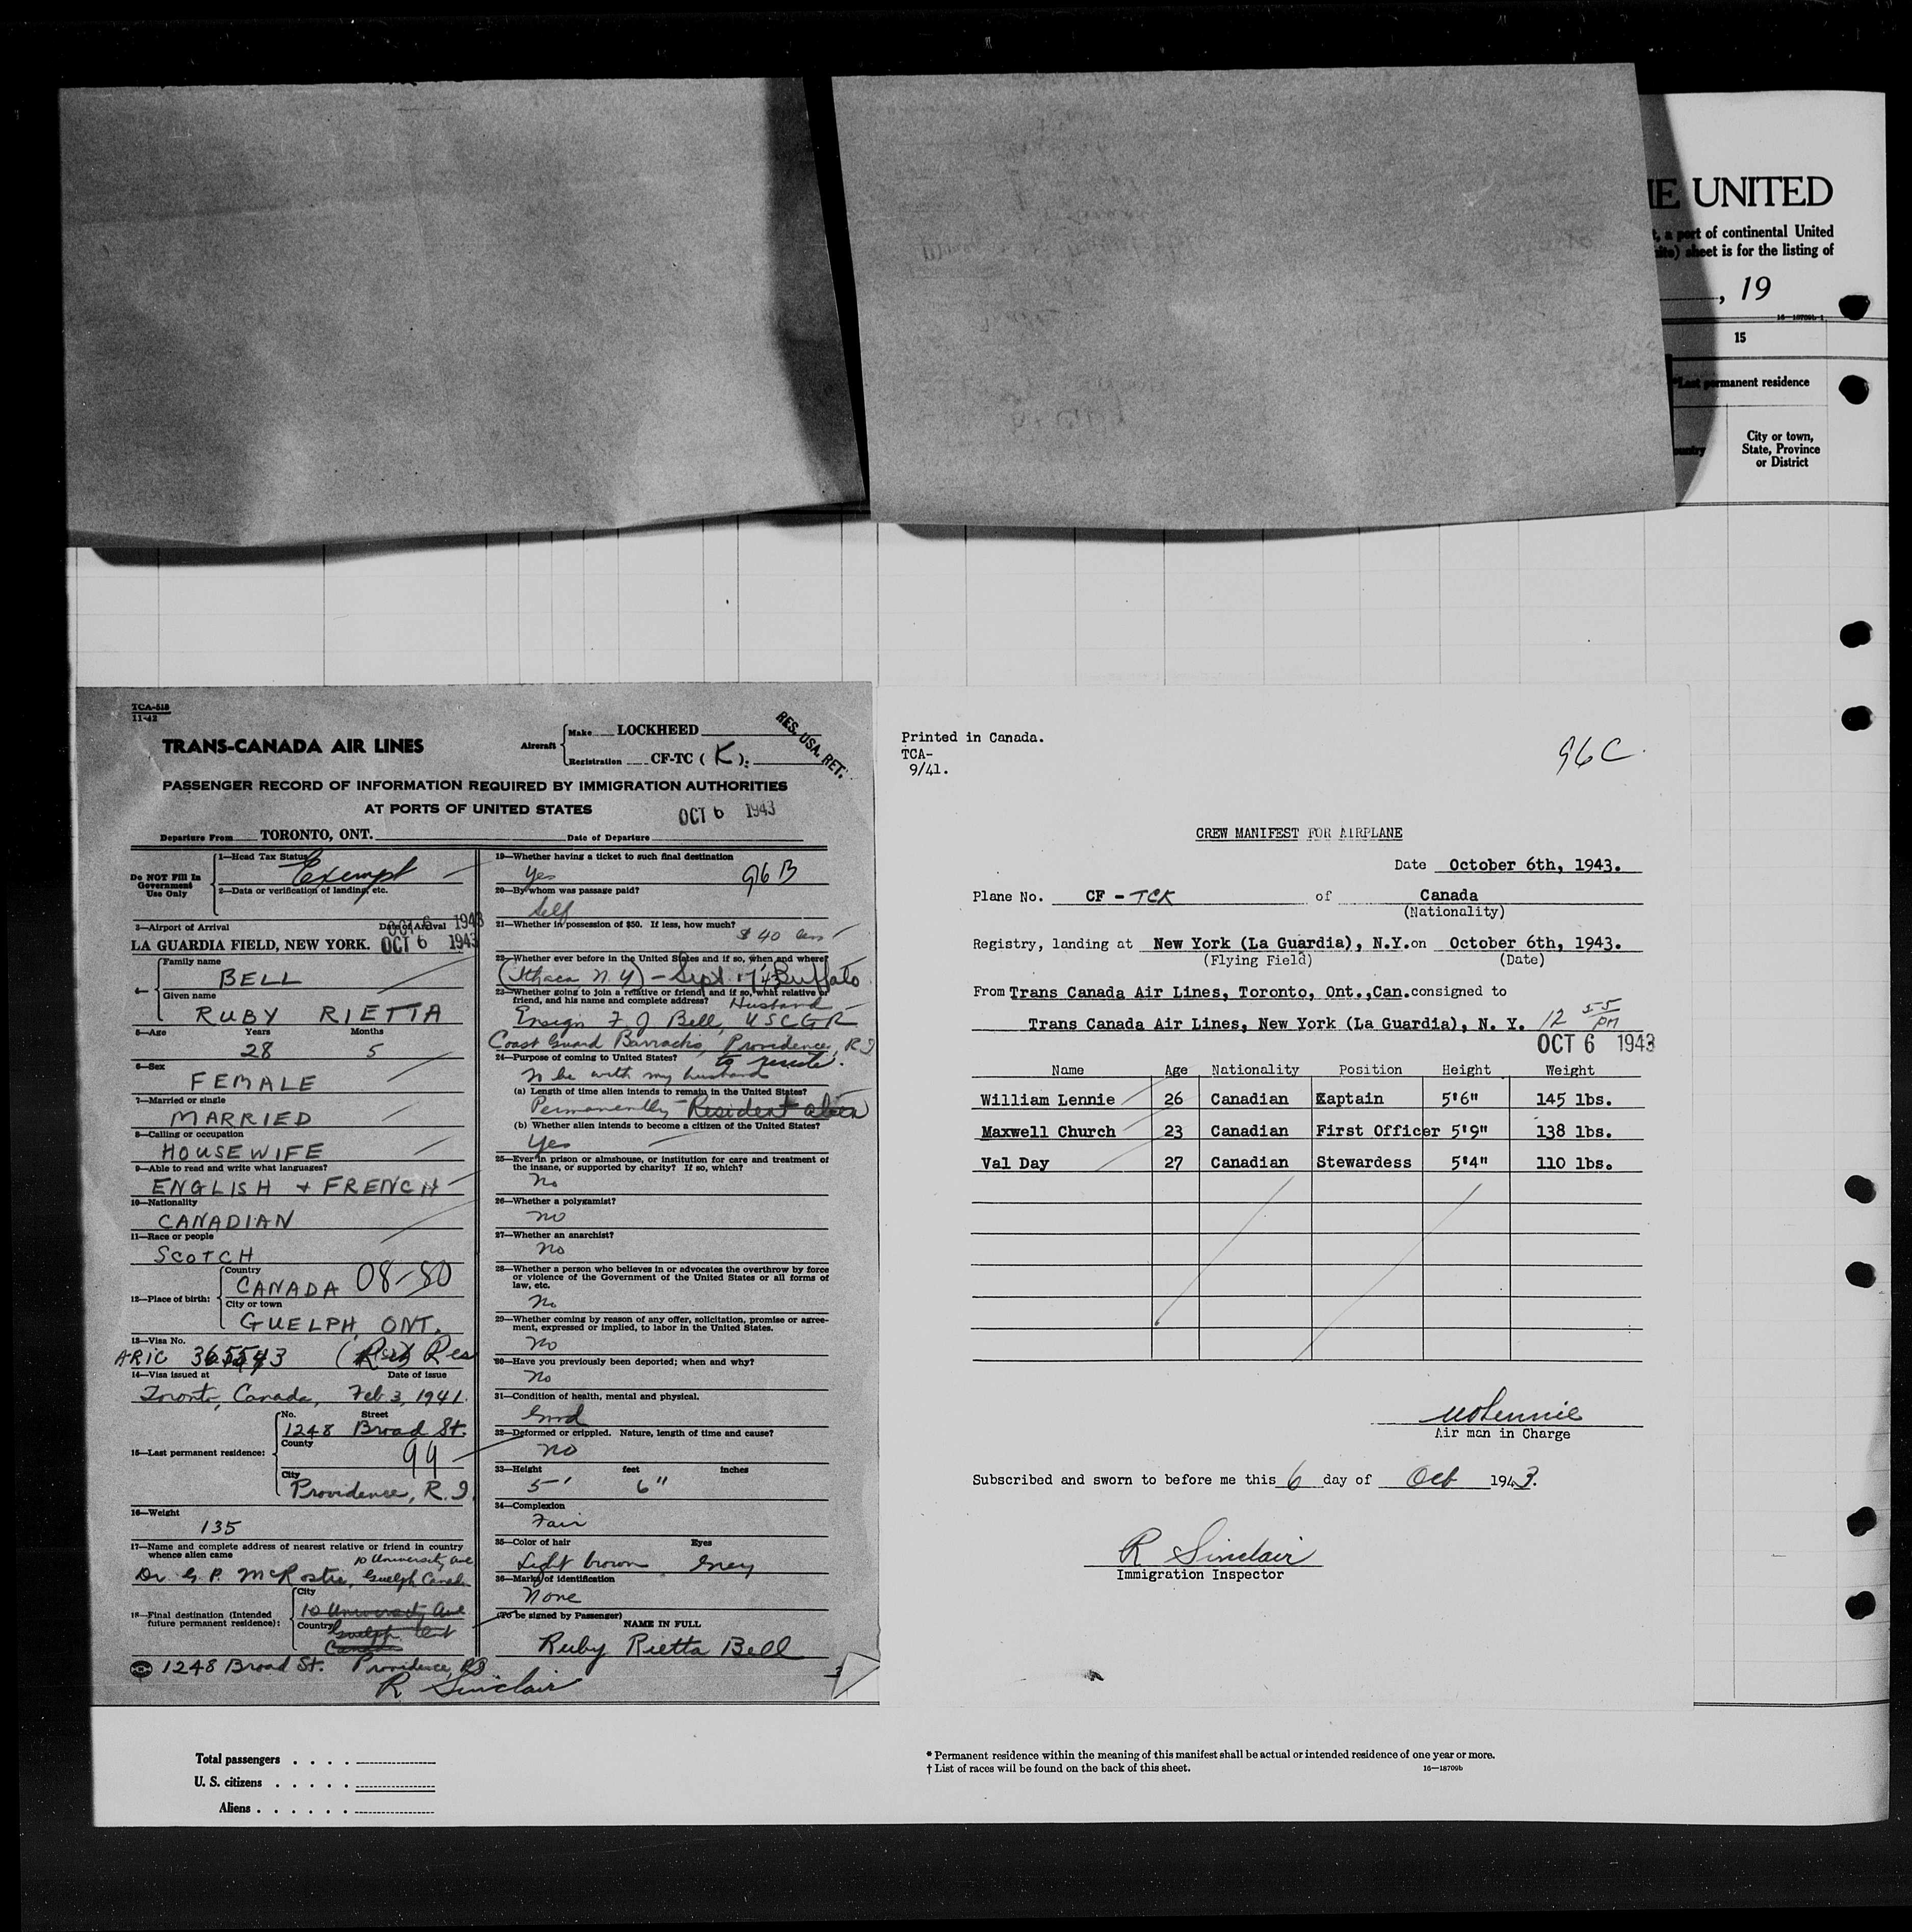 THE UNITED
t, a port of continental United
(white) sheet is for the listing of
, 19
16—18709b-1
15
*Last permanent residence
Country
City or town,
State, Province
or District
TCA-518
11-42
TRANS-CANADA AIR LINES
Aircraft
Make LOCKHEED
Registration CF-TC ( K ):
RES. USA. RET.
PASSENGER RECORD OF INFORMATION REQUIRED BY IMMIGRATION AUTHORITIES
AT PORTS OF UNITED STATES
OCT 6 1943
Departure From TORONTO, ONT. Date of Departure
Do NOT Fill In
Government
Use Only
1—Head Tax Status
Exempt
2—Data or verification of landing, etc.
3—Airport of Arrival Date of Arrival
OCT 6 1943
LA GUARDIA FIELD, NEW YORK. OCT 6 1943
4—
Family name
BELL
Given name
RUBY RIETTA
5—Age Years Months
28 5
6—Sex
FEMALE
7—Married or single
MARRIED
8—Calling or occupation
HOUSEWIFE
9—Able to read and write what languages?
ENGLISH + FRENCH
10—Nationality
CANADIAN
11—Race or people
SCOTCH
12—Place of birth:
Country
CANADA 08-80
City or town
GUELPH, ONT.
13—Visa No.
ARIC 365543 Res
14—Visa issued at Date of issue
Toronto, Canada, Feb. 3, 1941.
15—Last permanent residence:
No. Street
1248 Broad St.
County
99
City
Providence, R.I.
16—Weight
135
17—Name and complete address of nearest relative or friend in country
whence alien came
10 University Ave
Dr. G. P. McRostie, Guelph Canada
18—Final destination (Intended
future permanent residence):
City
10 University Ave
Country
Guelph Ont
Canada
1248 Broad St. Providence, RI
R Sinclair
19—Whether having a ticket to such final destination
Yes 96 B
20—By whom was passage paid?
Self
21—Whether in possession of $50. If less, how much?
$40
22—Whether ever before in the United States and if so, when and where?
(Ithaca N.Y) - Sept. 17/43 Buffalo
23—Whether going to join a relative or friend and if so, what relative or
friend, and his name and complete address? Husband
Ensign F J Bell, USCGR
Coast Guard Barracks, Providence, RI
24—Purpose of coming to United States? to reside.
To be with my husband
(a) Length of time alien intends to remain in the United States?
Permanently - Resident alien
(b) Whether alien intends to become a citizen of the United States?
Yes
25—Ever in prison or almshouse, or institution for care and treatment of
the insane, or supported by charity? If so, which?
No
26—Whether a polygamist?
no
27—Whether an anarchist?
no
28—Whether a person who believes in or advocates the overthrow by force
or violence of the Government of the United States or all forms of
law, etc.
No
29—Whether coming by reason of any offer, solicitation, promise or agree-
ment, expressed or implied, to labor in the United States.
No
30—Have you previously been deported; when and why?
No
31—Condition of health, mental and physical.
Good
32—Deformed or crippled. Nature, length of time and cause?
no
33—Height feet inches
5' 6"
34—Complexion
Fair
35—Color of hair Eyes
Light brown Grey
36—Marks of identification
None
(To be signed by Passenger)
NAME IN FULL
Ruby Rietta Bell
Printed in Canada.
TCA-
9/41.
96C.
CREW MANIFEST FOR AIRPLANE
Date October 6th, 1943.
Plane No. CF - TCK of Canada
(Nationality)
Registry, landing at New York (La Guardia), N.Y. on October 6th, 1943.
(Flying Field) (Date)
From Trans Canada Air Lines, Toronto, Ont.,Can. consigned to
Trans Canada Air Lines, New York (La Guardia), N. Y. 12 55 pm
OCT 6 1943
Name Age Nationality Position Height Weight
William Lennie 26 Canadian Kaptain 5'6" 145 lbs.
Maxwell Church 23 Canadian First Officer 5'9" 138 lbs.
Val Day 27 Canadian Stewardess 5'4" 110 lbs.
WLennie
Air man in Charge
Subscribed and sworn to before me this 6 day of Oct 1943.
R Sinclair
Immigration Inspector
Total passengers . . . .
U. S. citizens . . . . .
Aliens . . . . . .
* Permanent residence within the meaning of this manifest shall be actual or intended residence of one year or more.
† List of races will be found on the back of this sheet.
16—18709b